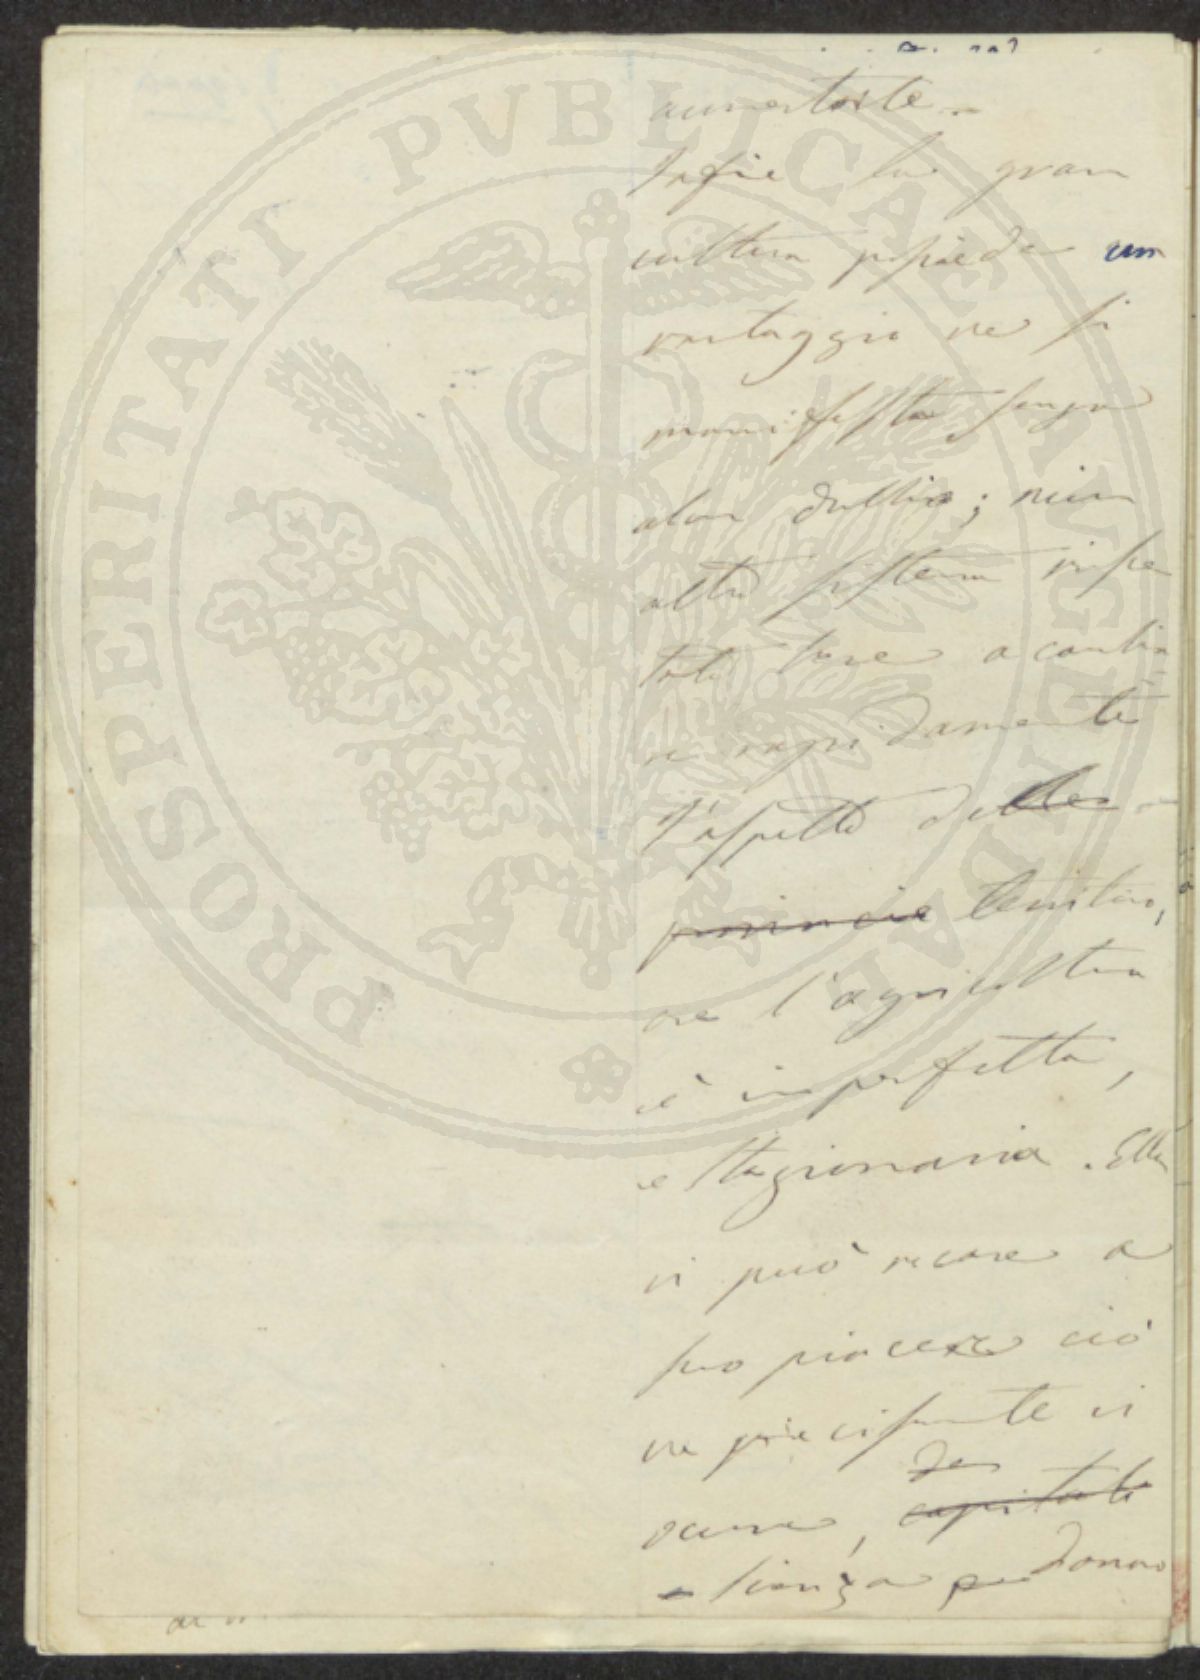 PROSPERITATI PVBLICAE AVGENDAE
aumentarle.
Infine la gran
cultura possiede un
vantaggio che si
manifesta senza
alcun dubbio; niun
altro sistema
potrà fare a cambia
re rapidamente
l'aspetto delle
provincie territorio,
ove l'agricoltura
è imperfetta,
e stazionaria. Ella
vi può recare a
suo piacere ciò
che precisamente vi
de
occorre, capitali
scienza danaro